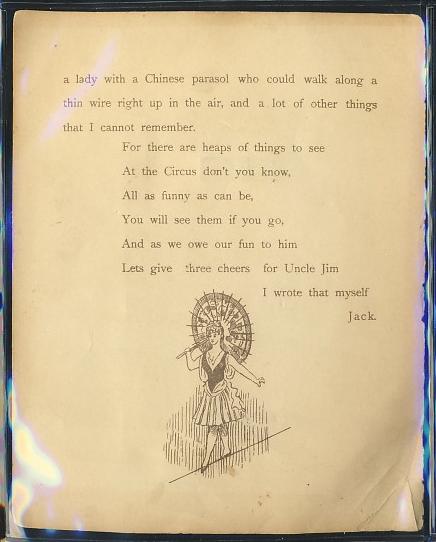 a lady with a Chinese parasol who could walk along a
thin wire right up in the air, and a lot of other things
that I cannot remember.
For there are heaps of things to see
At the Circus don't you know,
All as funny as can be,
You will see them if you go,
And as we owe our fun to him
Lets give three cheers for Uncle Jim
I wrote that myself
Jack.